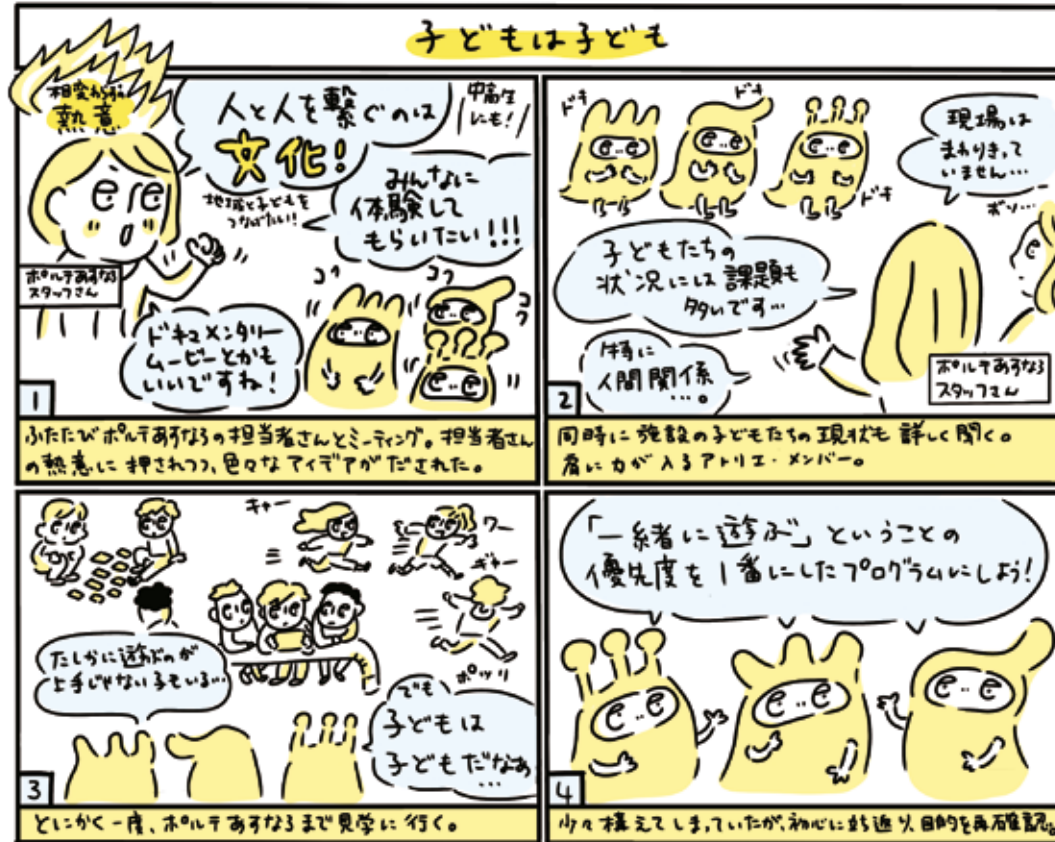 子どもは子ども
相変わらずの
熱意
人と人を繋ぐのは
文化!
中高生
にも!
地域と子どもを
つなげたい!
みんなに
体験して
もらいたい!!!
ポルテあすなろ
スタッフさん
コク
コク
コク
ドキュメンタリー
ムービーとかも
いいですね!
1
ふたたびポルテあすなろの担当者さんとミーティング。担当者さん
の熱意に押されつつ、色々なアイデアがだされた。
ドキ
ドキ
ドキ
現場は
まわりきって
いません…
ボソ…
子どもたちの
状況には課題も
多いです…
特に
人間関係
…。
ポルテあすなろ
スタッフさん
2
同時に施設の子どもたちの現状も詳しく聞く。
肩に力が入るアトリエ・メンバー。
キャー
ワー
ギャー
たしかに遊ぶのが
上手じゃない子もいる…
ポツリ
でも
子どもは
子どもだなあ
…
3
とにかく一度、ポルテあすなろまで見学に行く。
「一緒に遊ぶ」ということの
優先度を1番にしたプログラムにしよう!
4
少々構えてしまっていたが、初心に立ち返り目的を再確認。